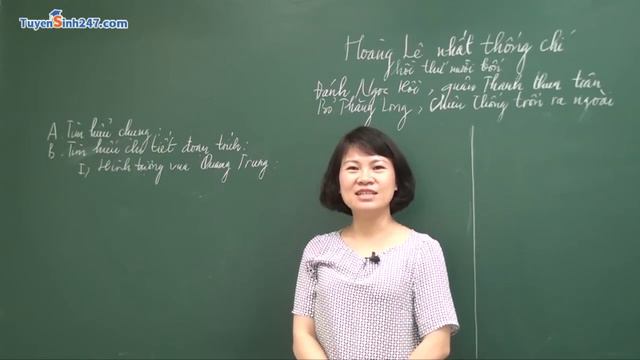 TuyenSinh247.com
Hoàng Lê nhất thống chí
hồi thứ mười bốn
Đánh Ngọc Hồi, quân Thanh thua trận
Bỏ Thăng Long, Chiêu Thống trốn ra ngoài
A Tìm hiểu chung:
B. Tìm hiểu chi tiết đoạn trích:
I, Hình tượng vua Quang Trung: